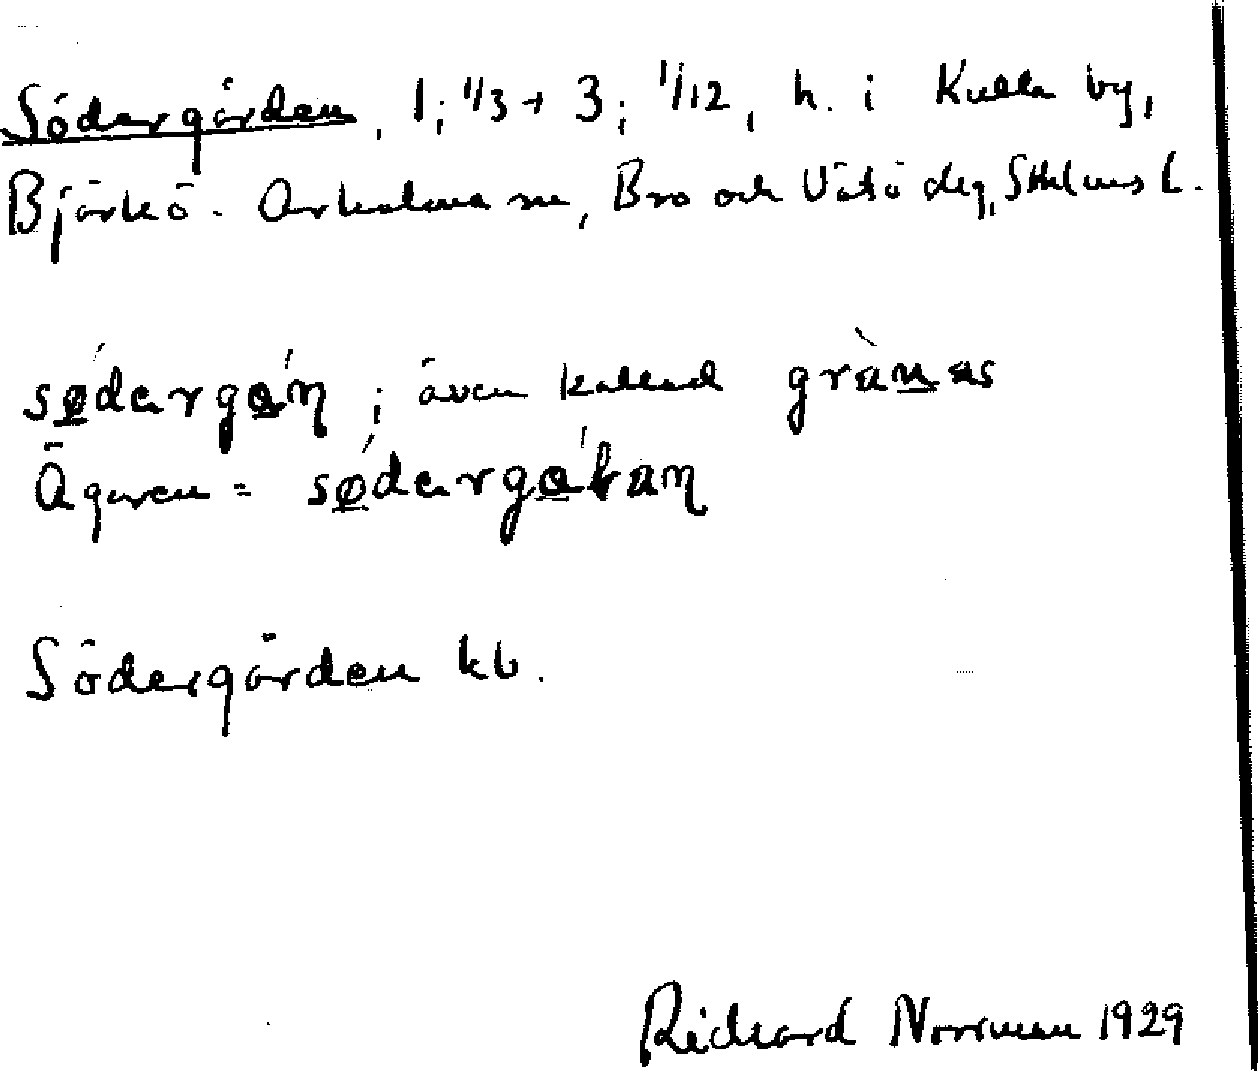 Södergården, 1; 1/3 + 3; 1/12, h. i Kulla by,
Björkö-Arholma sn, Bro och Vätö dlg, Sthlms l.
södergán; även kallad grànas
Ägaren = södergában
Södergården kb.
Richard Norrman 1929